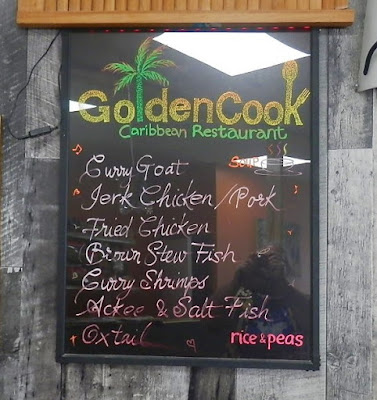 GoldenCook
Caribbean Restaurant
Soup
Curry Goat
Jerk Chicken/Pork
Fried Chicken
Brown Stew Fish
Curry Shrimps
Ackee & Salt Fish
Oxtail
rice & peas